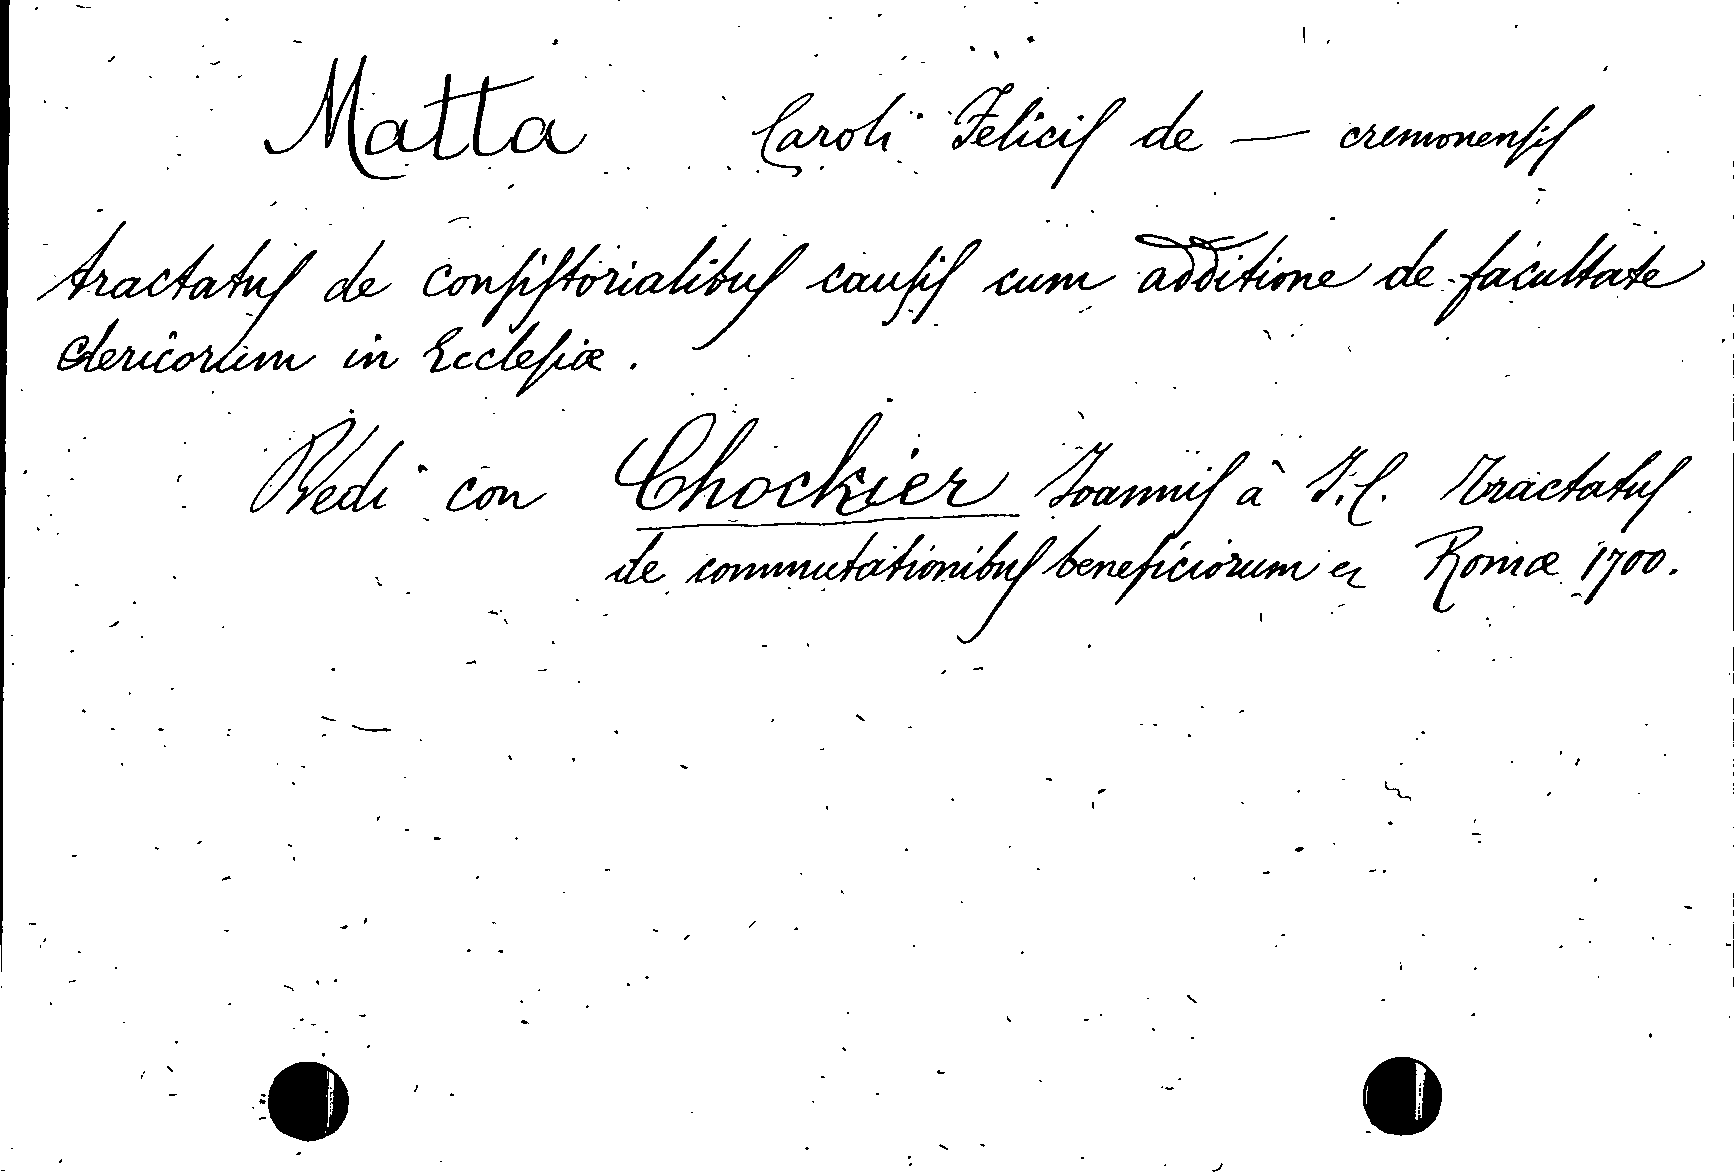 Matta Caroli Felicis de — cremonensis
tractatus de consistorialibus causis cum additione de facultate
clericorum in Ecclesiæ.
Vedi con Chockier Joannis à J.C. Tractatus
de commutationibus beneficiorum & Romæ 1700.